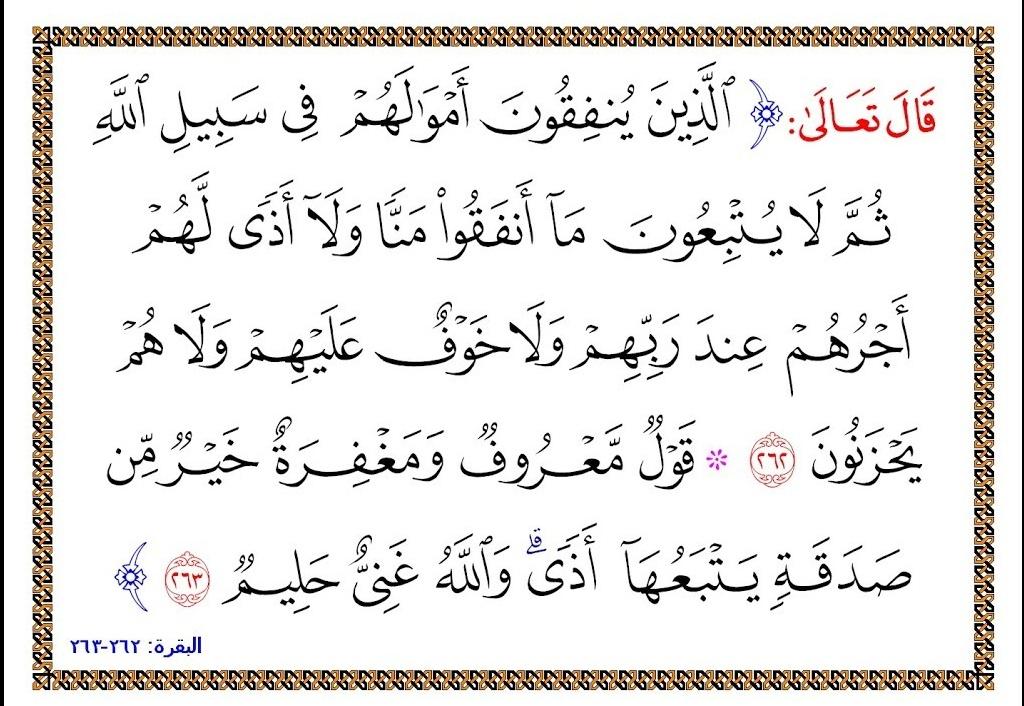 قَالَ تَعَالَىٰ: ﴿ ٱلَّذِينَ يُنفِقُونَ أَمْوَٰلَهُمْ فِى سَبِيلِ ٱللَّهِ
ثُمَّ لَا يُتْبِعُونَ مَآ أَنفَقُوا۟ مَنًّا وَلَآ أَذًى لَّهُمْ
أَجْرُهُمْ عِندَ رَبِّهِمْ وَلَا خَوْفٌ عَلَيْهِمْ وَلَا هُمْ
يَحْزَنُونَ ٢٦٢ * قَوْلٌ مَّعْرُوفٌ وَمَغْفِرَةٌ خَيْرٌ مِّن
صَدَقَةٍ يَتْبَعُهَآ أَذًى ۗ وَٱللَّهُ غَنِىٌّ حَلِيمٌ ٢٦٣ ﴾
البقرة: ٢٦٢-٢٦٣